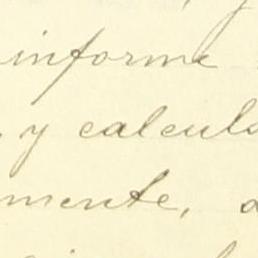 informe
, y calcula
mente, a